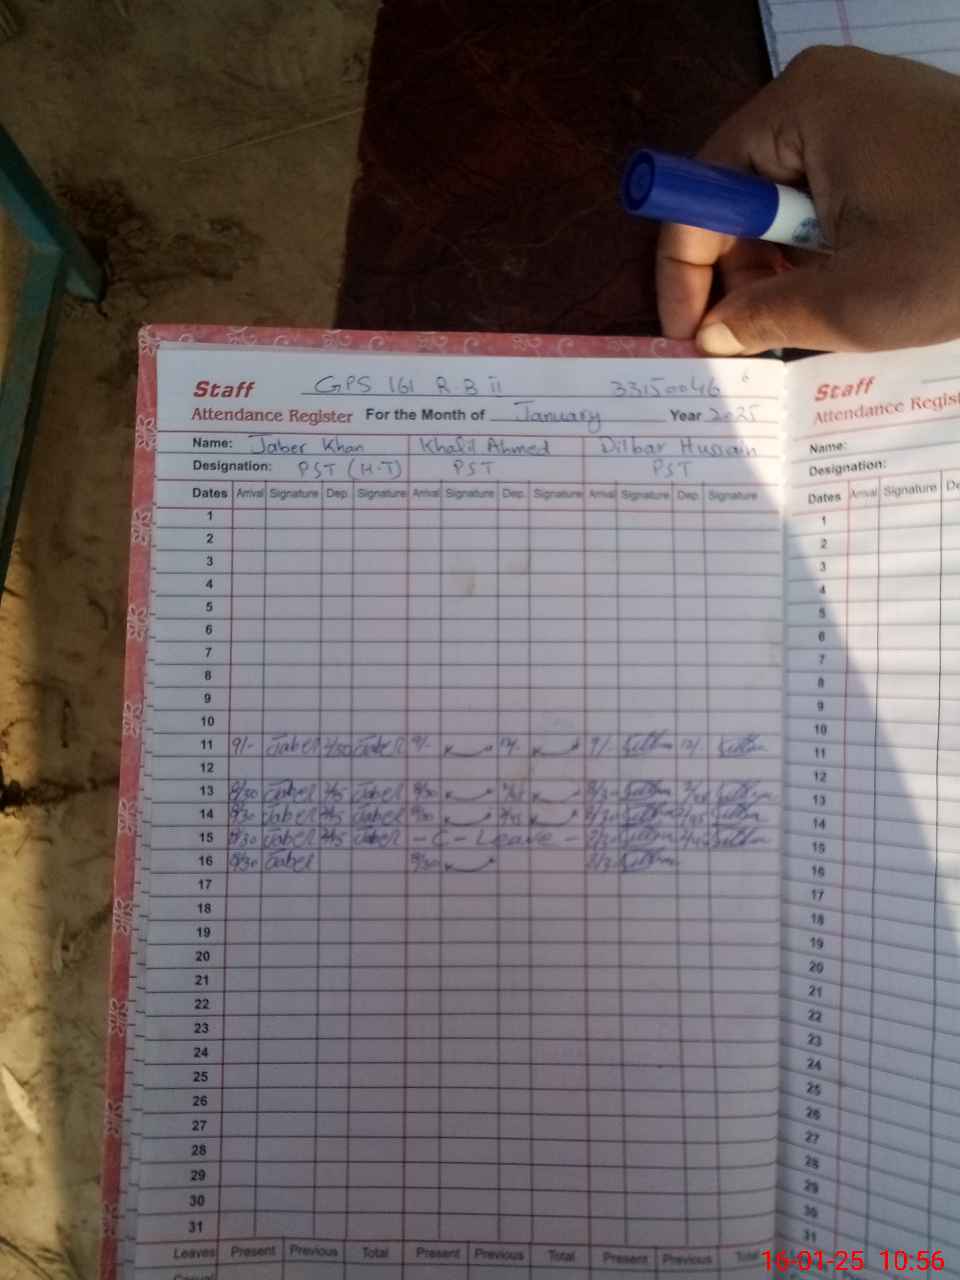 Staff GPS 161 R.B ii 33150046 6
Attendance Register For the Month of January Year 2025
Name: Jaber Khan Khalil Ahmed Dilbar Hussain
Designation: PST (H.T) PST PST
Dates Arrival Signature Dep. Signature Arrival Signature Dep. Signature Arrival Signature Dep. Signature
1
2
3
4
5
6
7
8
9
10
11 9/- Jaber Jaber 9/- 12/- 9/- 12/-
12
13 8/30 Jaber Jaber 8/30 8/30
14 8/30 Jaber 2/45 Jaber 8/30 2/45 8/30 2/45
15 8/30 Jaber 2/45 Jaber - C - Leave - 8/30 2/45
16 8/30 Jaber 8/30 8/30
17
18
19
20
21
22
23
24
25
26
27
28
29
30
31
Leaves Present Previous Total Present Previous Total Present Previous Total
Casual
Staff
Attendance Regist
Name:
Designation:
Dates Arrival Signature De
1
2
3
4
5
6
7
8
9
10
11
12
13
14
15
16
17
18
19
20
21
22
23
24
25
26
27
28
29
30
31
16-01-25 10:56